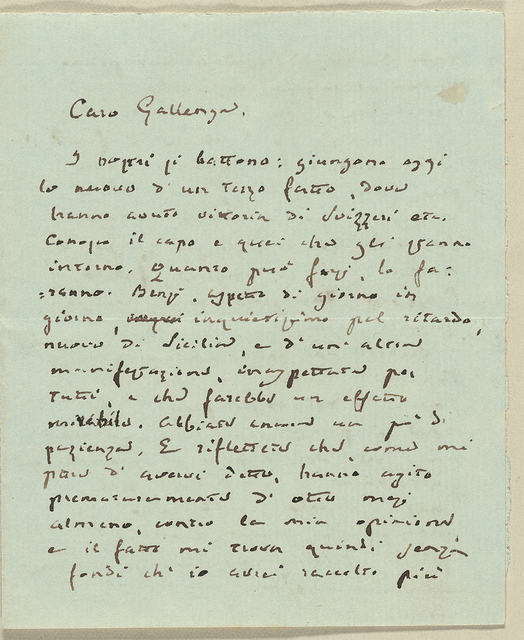 Caro Gallenga,
I nostri si battono: giungono oggi
le nuove d'un terzo fatto, dove
hanno avuto vittoria di Svizzeri etc.
Conosco il capo e quei che gli stanno
intorno. Quanto può farsi, lo fa-
ranno. Benzi, aspetto di giorno in
giorno, inquietissimo pel ritardo,
nuove di Sicilia, e d'un'altra
manifestazione, inaspettata per
tutti, e che farebbe un effetto
mirabile. Abbiate ancora un po' di
pazienza. E riflettete che, come mi
pare d'avervi detto, hanno agito
prematuramente d'otto mesi
almeno, contro la mia opinione
e il fatto mi trova quindi senza
fondi ch'io avrei raccolto più